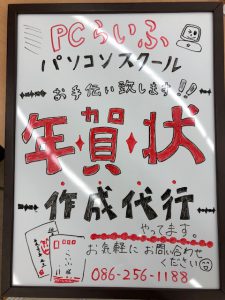 PCらいふ
パソコンスクール
お手伝い致します!!
年賀状
作成代行
やってます。
お気軽にお問い合わせ
ください
086-256-1188